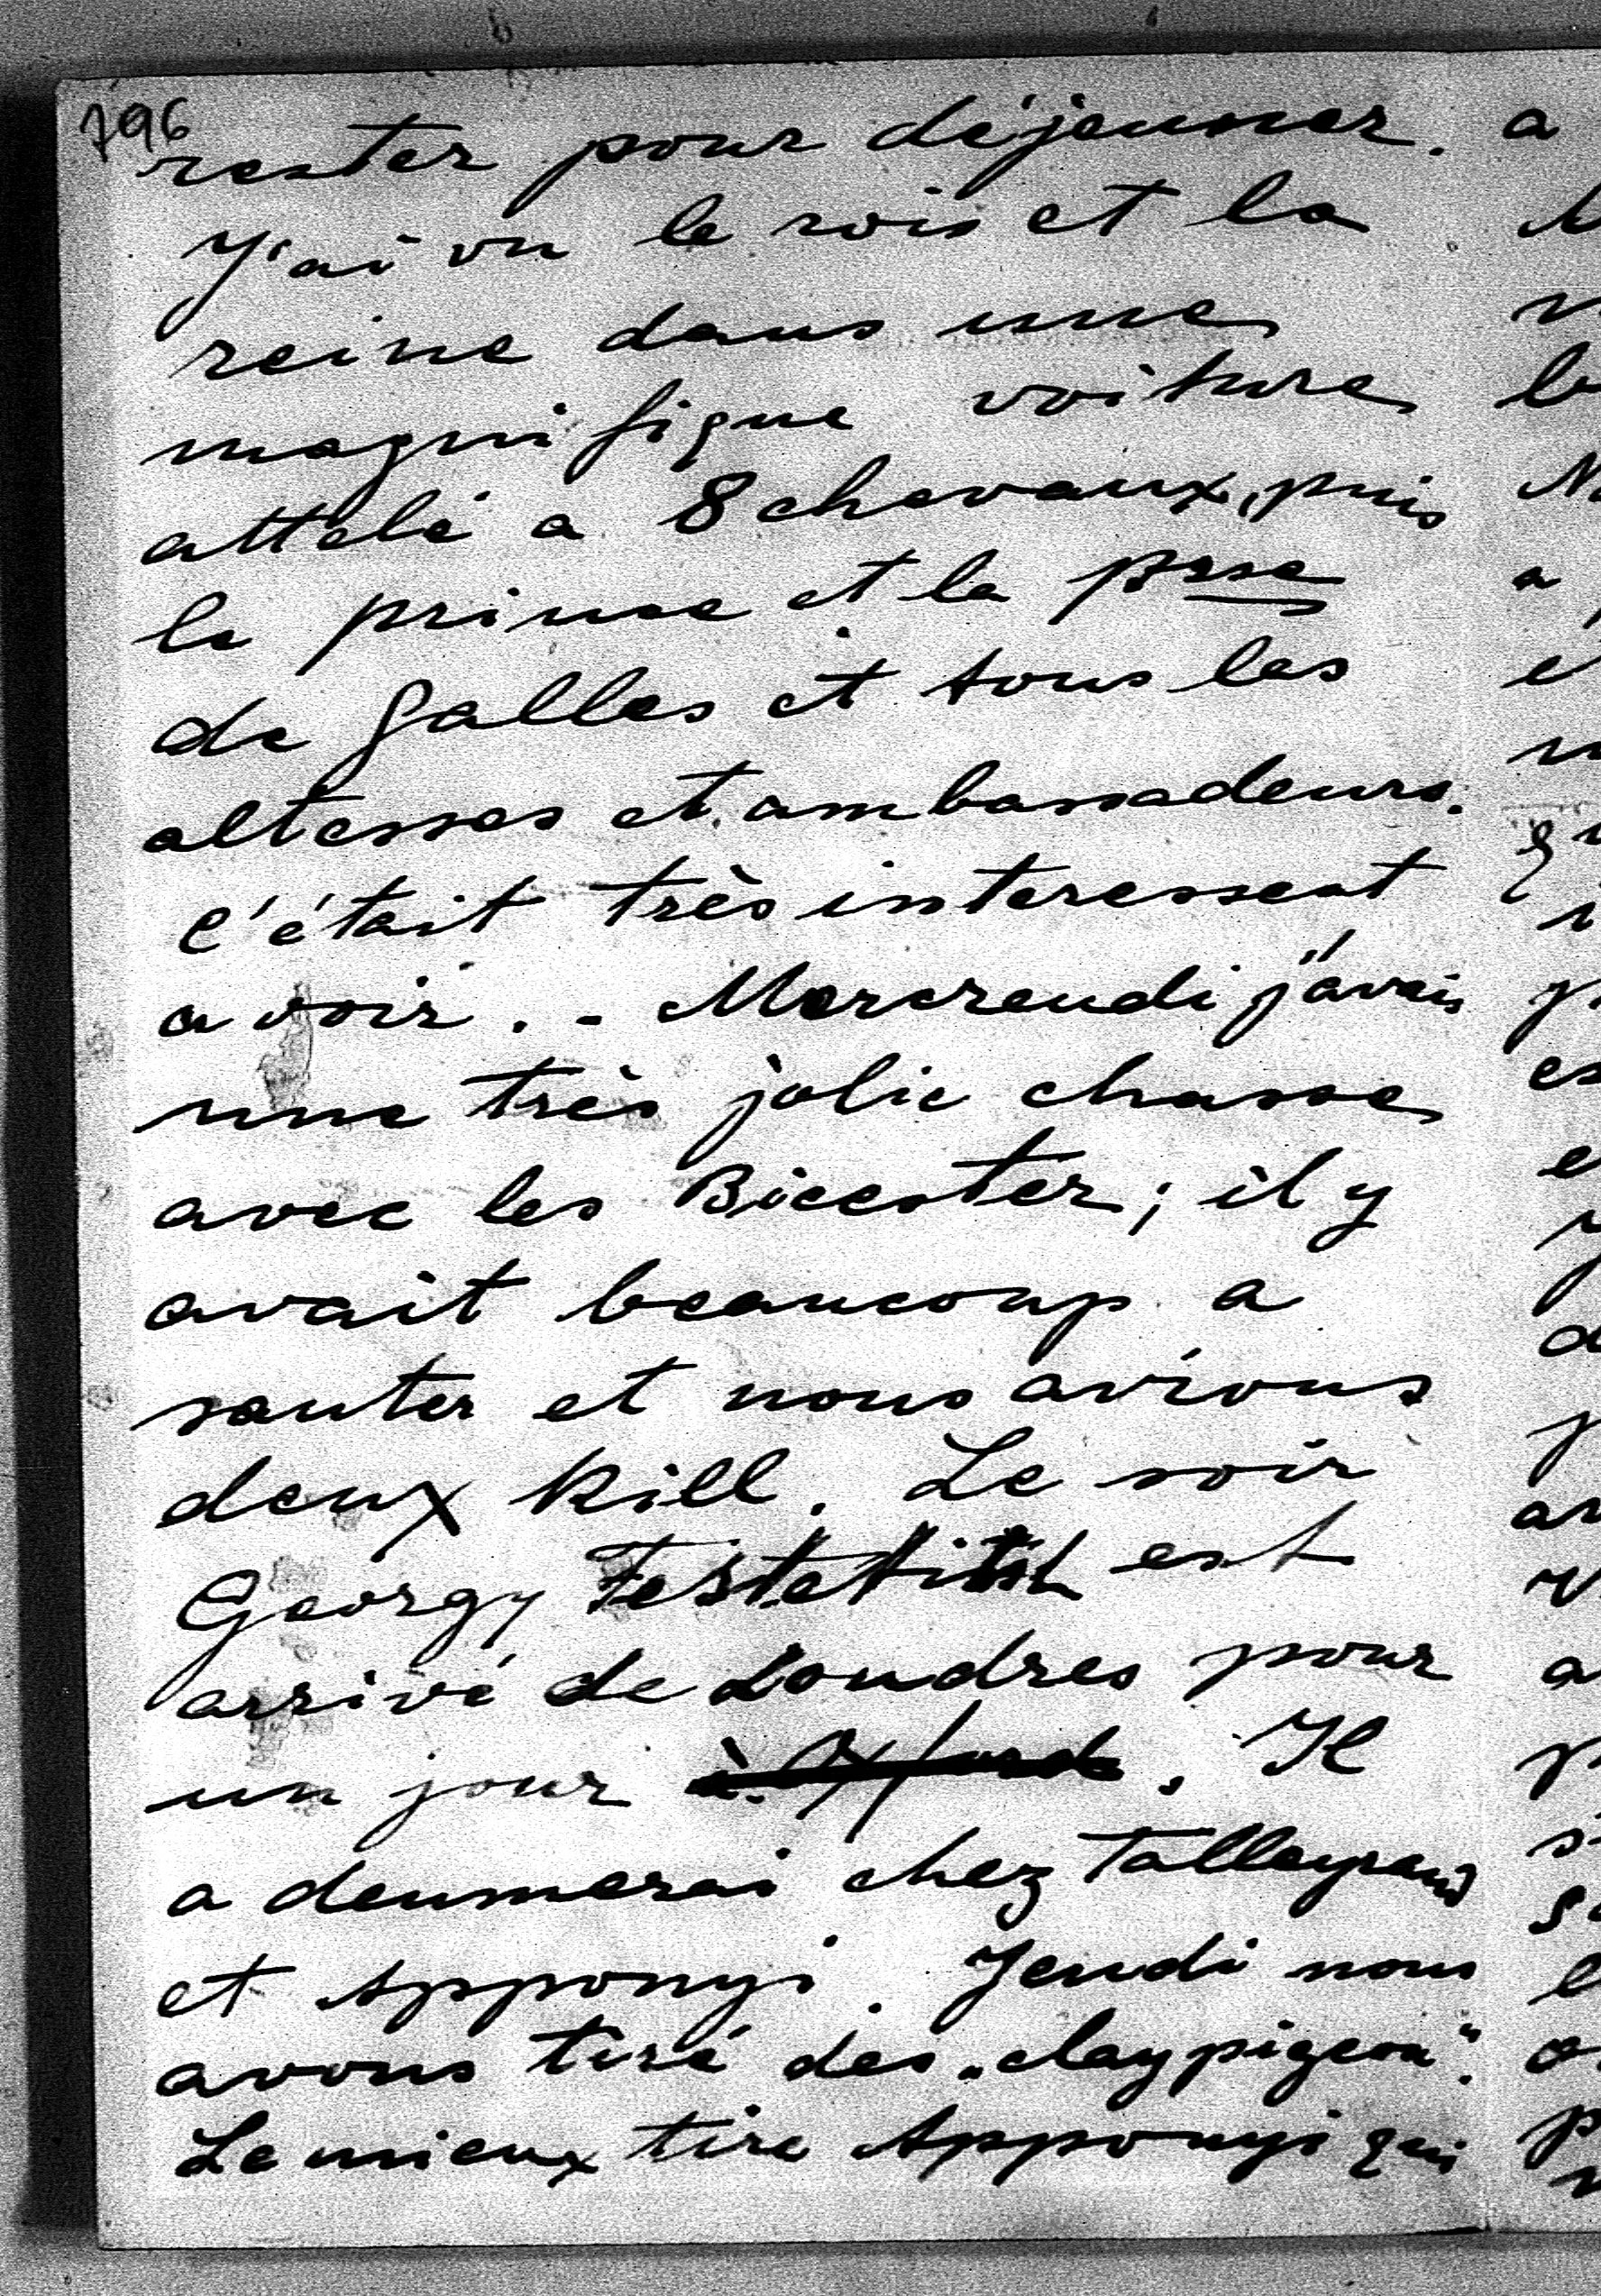 796
rester pour déjeuner.
J'ai vu le rois et la
reine dans une
magnifique voiture
attelé a 8 chevaux, puis
le prince et la prsse
de Galles et tous les
altesses et ambassadeurs.
C'était très interessent
a voir. - Mercrendi j'avais
une très jolie chasse
avec les Bicester; il y
avait beaucoup a
sauter et nous avions
deux kill. Le soir
Georgy Festetitsh est
arrivé de Londres pour
un jour à Oxford. Il
a deumerai chez Talleyrand
et Apponyi. Jeudi nous
avons tiré des „clay pigeon“.
Le mieux tire Apponyi qui